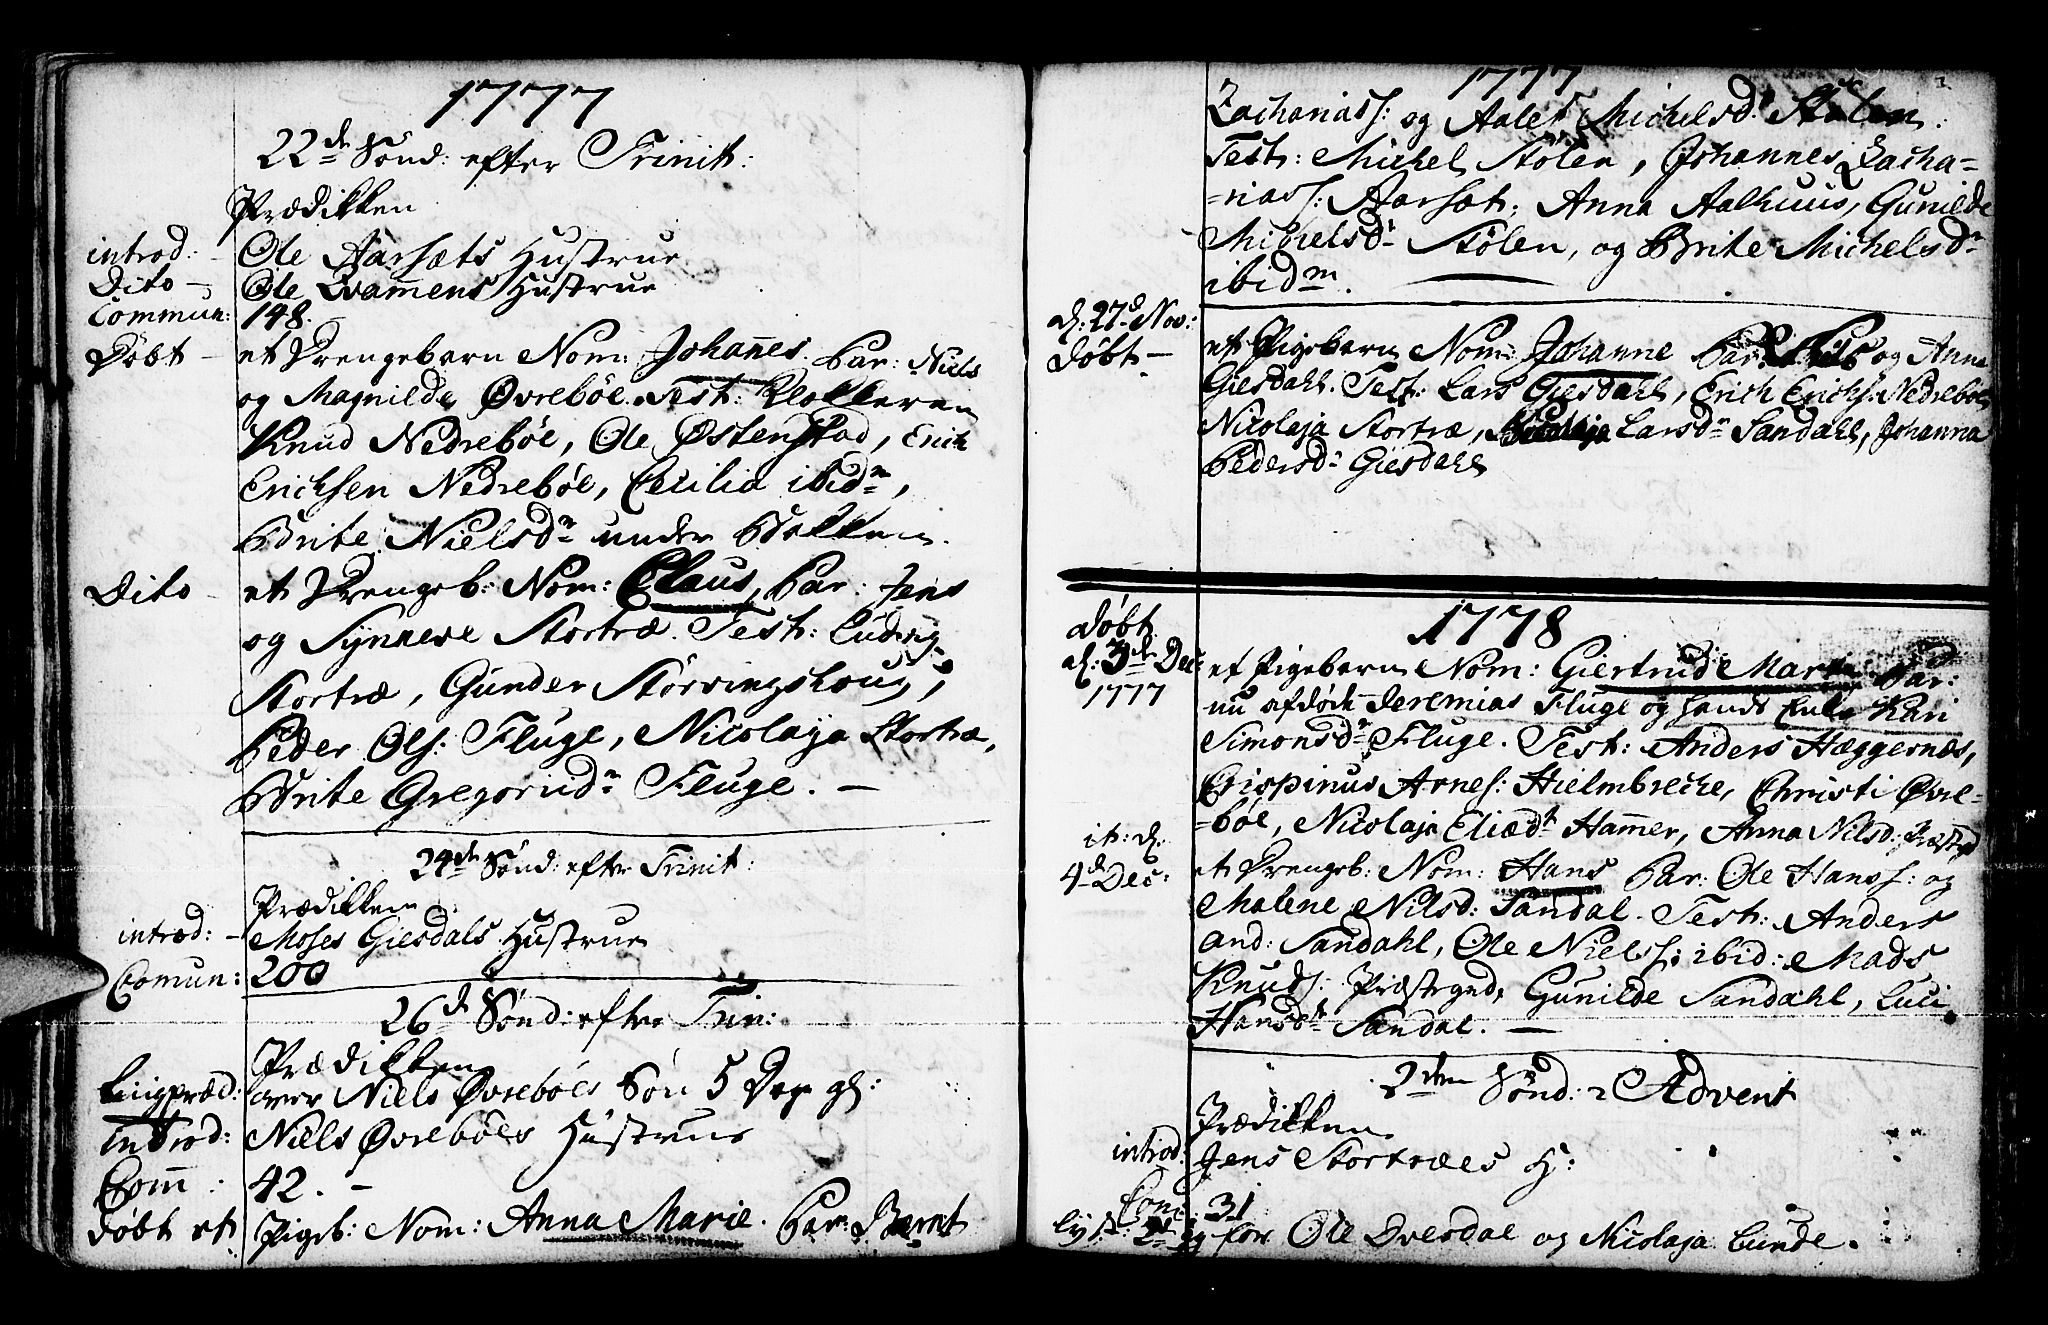 1777
22de Sønd: efter Trinit:
Prædikken
introd: - Ole Aarsæts Hustrue
Dito - Ole Qvamens Hustrue
Commun: 148.
Døbt - et Drengebarn Nom: Johannes. Par: Niels
og Magnilde Øvrebøe. Test: Klokkeren
Knud Nedrebøe, Ole Østenstad, Erich
Erichsen Nedrebøe, Cecilia ibidm,
Brite Nielsdr under Bakken.
Dito - et Drengeb: Nom: Claus, Par: Jens
og Synneve Stortræ. Test: Ludvig
Stortræ, Gunder Störvingshoug,
Peder Ols: Fluge, Nicolaja Stortræ,
Brite Gregoriidr Fluge. -
24de Sønd: efter Trinit:
Prædikken
introd: - Moses Giesdals Hustrue
Comun: 200
26d Sønd: efter Trin:
Prædikken
Liigpræd: over Niels Øvrebøes Søn 5 Dage gl:
introd: Niels Øvrebøes Hustrue
Com̄: 42. -
døbt et Pigeb: Nom: Anna Marie. Par: Bernt
1777
Zachariass: og Aalet Michelsd: Stølen:
Test: Michel Stølen, Johannes Zacha=
=riass: Aarsæt, Anna Aalhuus, Gunilde
Michelsdr Stølen, og Brite Michelsdr
ibidm.
d: 27d Nov:
døbt - et Pigebarn Nom: Johanne Par: og Anna
Giesdahl. Test: Lars Giesdahl, Erich Erichs: Nedrebøe
Nicolaja Stortræ, Larsdr Sandahl, Johanna
Pedersdr Giesdahl
1778
døbt
d: 3de Dec: 1777 et Pigebarn Nom: Giertrud Marie Par:
nu afdøde Jeremias Fluge og hands Enke Kari
Simonsdr Fluge. Test: Anders Hæggernæs,
Crispinus Arnes: Hielmbrecke, Christi Øvre=
=bøe, Nicolaja Eliædr Hammer, Anna Nilsd: Præstgd
it: d. 4d Dec: et Drengeb: Nom: Hans Par: Ole Hanss: og
Malene Nilsd: Sandal. Test: Anders
And: Sandahl, Ole Nielss: ibid: Mads
Knuds: Præstegrd, Gunilde Sandahl, Luci
Hansdr Sandal. -
2den Sønd: i Advent
Prædikken
introd: Jens Stortræes H:
Com: 31
lyst: 2d g for Ole Dvesdal og Nicolaja Lunde.